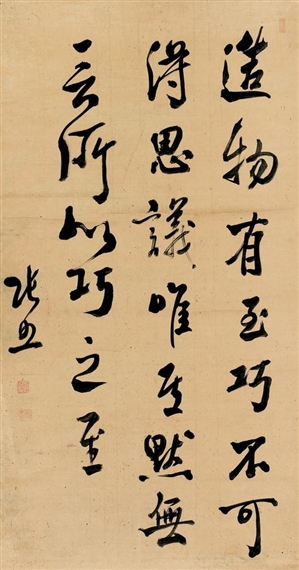 造物有至巧不可
得思議唯其默無
言所以巧之至
张照